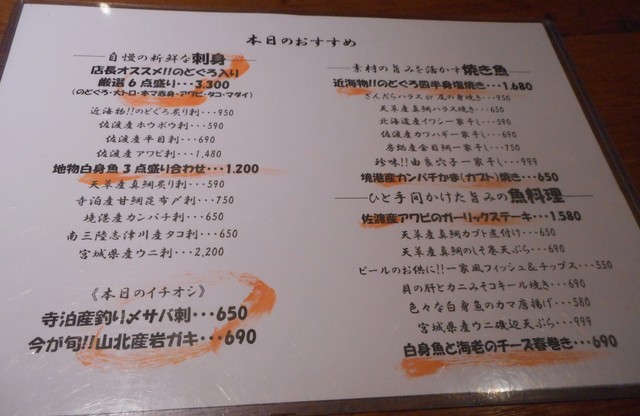 本日のおすすめ
自慢の新鮮な刺身
店長オススメ!!のどぐろ入り
厳選6点盛り・・・3,300
(のどぐろ・大トロ・本マ赤身・アワビ・タコ・マダイ)
近海物!!のどぐろ炙り刺・・・950
佐渡産ホウボウ刺・・・590
佐渡産平目刺・・・690
佐渡産アワビ刺・・・1,480
地物白身魚3点盛り合わせ・・・1,200
天草産真鯛炙り刺・・・590
寺泊産甘鯛昆布〆刺・・・750
境港産カンパチ刺・・・650
南三陸志津川産タコ刺・・・650
宮城県産ウニ刺・・・2,200
《本日のイチオシ》
寺泊産釣り〆サバ刺・・・650
今が旬!!山北産岩ガキ・・・690
素材の旨みを活かす焼き魚
近海物!!のどぐろ四半身塩焼き・・・1,680
ぎんだらハラス or 尾の身焼き・・・950
天草産真鯛ハラス焼き・・・650
北海道産イワシ一家干し・・・590
佐渡産カワハギ一家干し・・・690
房総産金目鯛一家干し・・・750
珍味!!由良穴子一家干し・・・999
境港産カンパチかま(カブト)焼き・・・650
ひと手間かけた旨みの魚料理
佐渡産アワビのガーリックステーキ・・・1,580
天草産真鯛カブト煮付け・・・650
天草産真鯛のしそ巻天ぷら・・・690
ビールのお供に!!一家風フィッシュ&チップス・・・550
貝の肝とカニみそコキール焼き・・・690
色々な白身魚のカマ唐揚げ・・・580
宮城県産ウニ磯辺天ぷら・・・999
白身魚と海老のチーズ春巻き・・・690